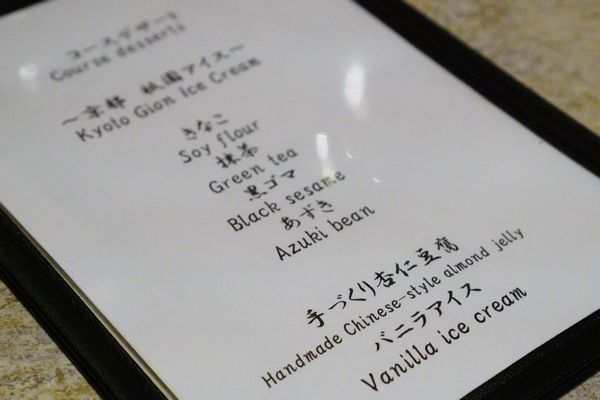 コースデザート
Course desserts
～京都 祇園アイス～
Kyoto Gion Ice Cream
きなこ
Soy flour
抹茶
Green tea
黒ゴマ
Black sesame
あずき
Azuki bean
手づくり杏仁豆腐
Handmade Chinese-style almond jelly
バニラアイス
Vanilla ice cream